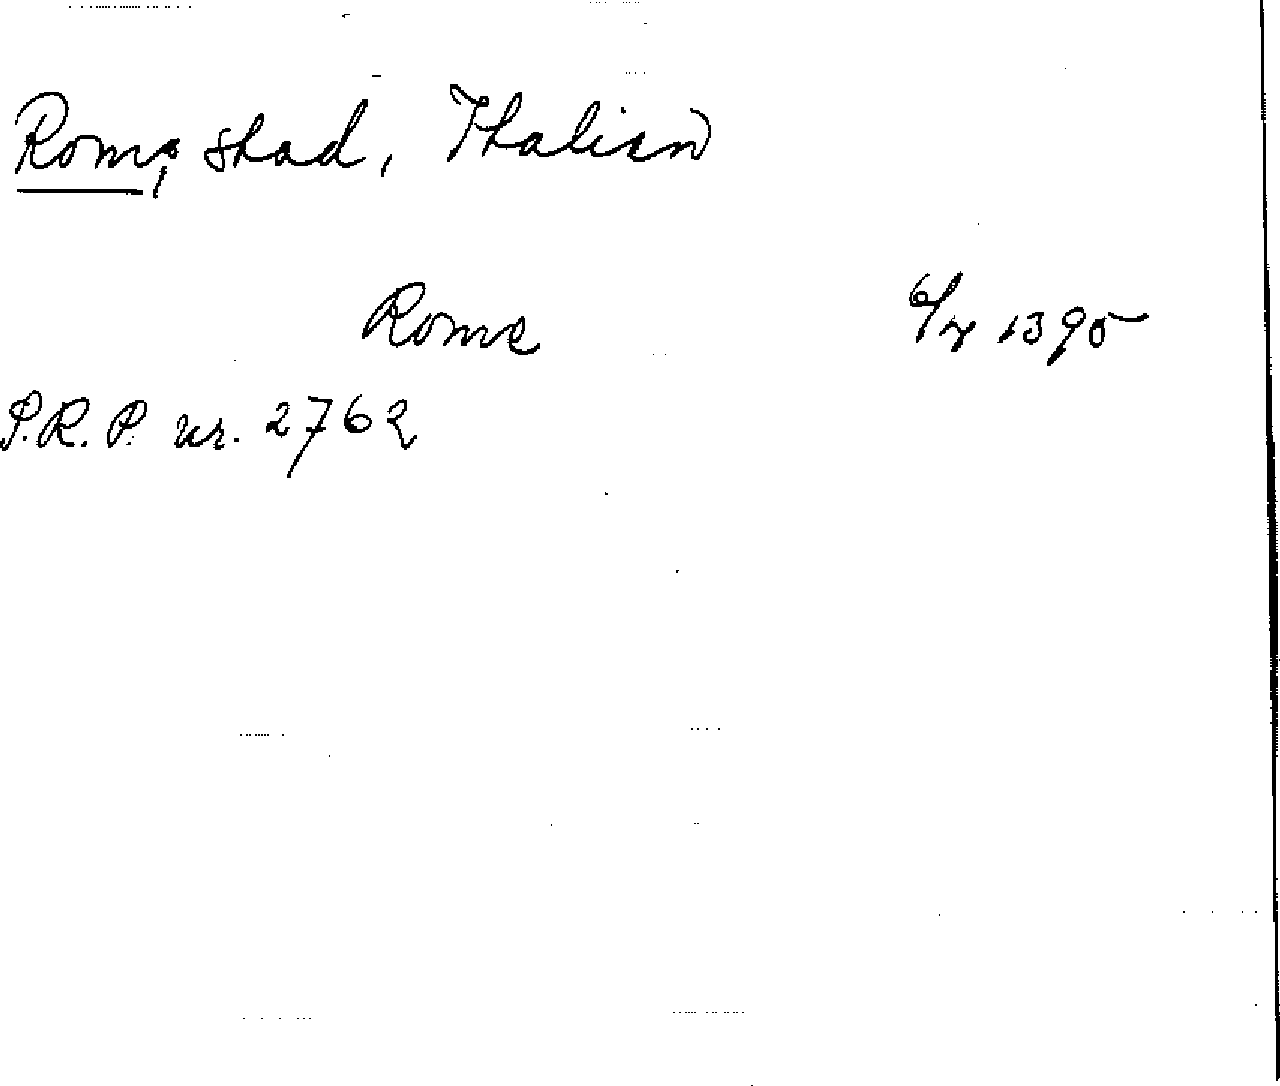 Roma, stad, Italien
Rom 1395
S.R.P. nr. 2762